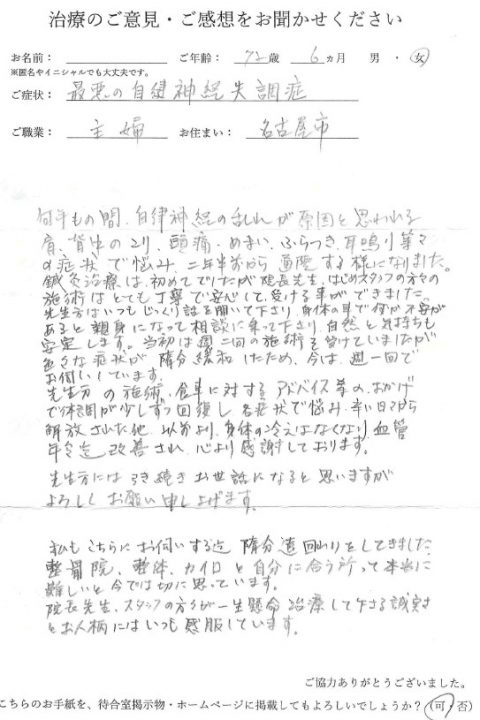 治療のご意見・ご感想をお聞かせください
お名前： ご年齢： 72歳 6ヵ月 男 ・ 女
※匿名やイニシャルでも大丈夫です。
ご症状： 最悪の自律神経失調症
ご職業： 主婦 お住まい： 名古屋市
何年もの間、自律神経の乱れが原因と思われる
肩、背中のコリ、頭痛・めまい、ふらつき、耳鳴り等々
の症状で悩み、二年半前から通院する様になりました。
鍼灸治療は、初めてでしたが院長先生、はじめスタッフの方々の
施術はとても丁寧で安心して受ける事ができました
先生方はいつもじっくり話を聞いて下さり、身体の事で何か不安が
あると親身になって相談に乗って下さり自然と気持ちも
安定します。当初は週二回の施術を受けていましたが
色々な症状が随分緩和したため、今は、週一回で
お伺いしています。
先生方の施術、食事に対するアドバイス等のおかげ
で体調が少しずつ回復し各症状で悩み、辛い日々から
解放された他、以前より、身体の冷えはなくなり、血管
年令迄改善され、心より感謝しております。
先生方には引き続きお世話になると思いますが
よろしくお願い申し上げます。
私もこちらにお伺いする迄随分遠回りをしてきました
整骨院、整体、カイロと自分に合う所って本当に
難しいと今では切に思っています。
院長先生、スタッフの方々が一生懸命治療して下さる誠実さ
とお人柄にはいつも感服しています。
ご協力ありがとうございました。
こちらのお手紙を、待合室掲示物・ホームページに掲載してもよろしいでしょうか？（可・否）